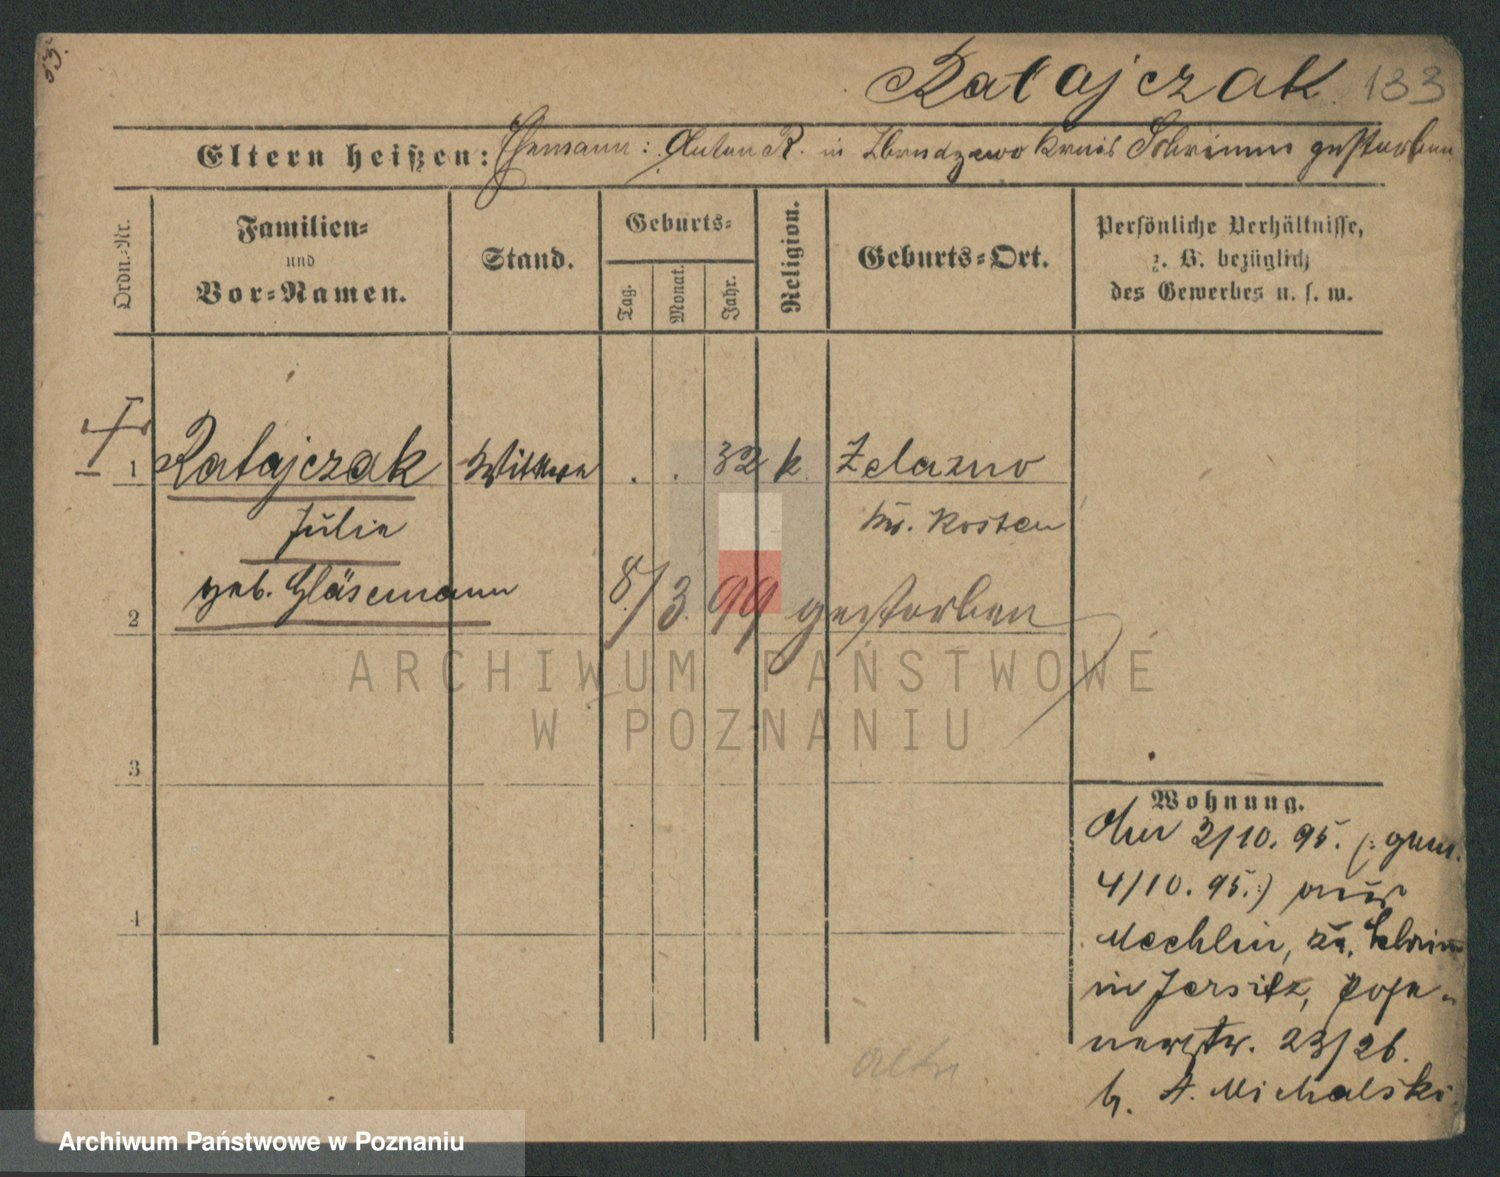 53.
Ratajczak 133
Eltern heißen: Ehemann: Anton R. in Zbrudzewo Kreis Schrimm gestorben
Ordn.-Nr.
Familien-
und
Vor-Namen.
Stand.
Geburts-
Tag.
Monat.
Jahr.
Religion.
Geburts-Ort.
Persönliche Verhältnisse,
z. B. bezüglich
des Gewerbes u. s. w.
1 Ratajczak Wittwe . . 32 k Zelazno
Julie Kr. Kosten
geb. Gläsemann
2 8/3. 99 gestorben
3
4
Wohnung.
2/10. 95. (: gem.
4/10. 95.:) aus
Mechlin, Kr. Schrimm
in Jersitz, Pose-
nerstr. 23/26.
b. A. Michalski
ARCHIWUM PAŃSTWOWE
W POZNANIU
Archiwum Państwowe w Poznaniu